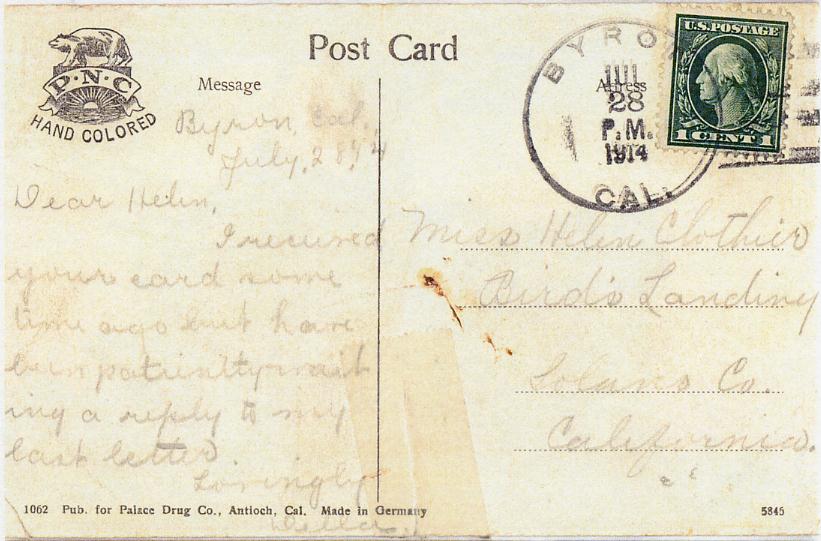 Post Card
P·N·C
HAND COLORED
Message
Address
BYRON
JUL
28
P.M.
1914
CAL.
U.S. POSTAGE
1 CENT 1
Byron, Cal.,
July, 28, 14
Dear Helen,
I recieved
your card some
time ago but have
been patientty wait
ing a reply to my
last letter
Lovingly
Della.
Miss Helen Clothier
Bird's Landing
Solano Co.
California.
1062 Pub. for Palace Drug Co., Antioch, Cal. Made in Germany
5845